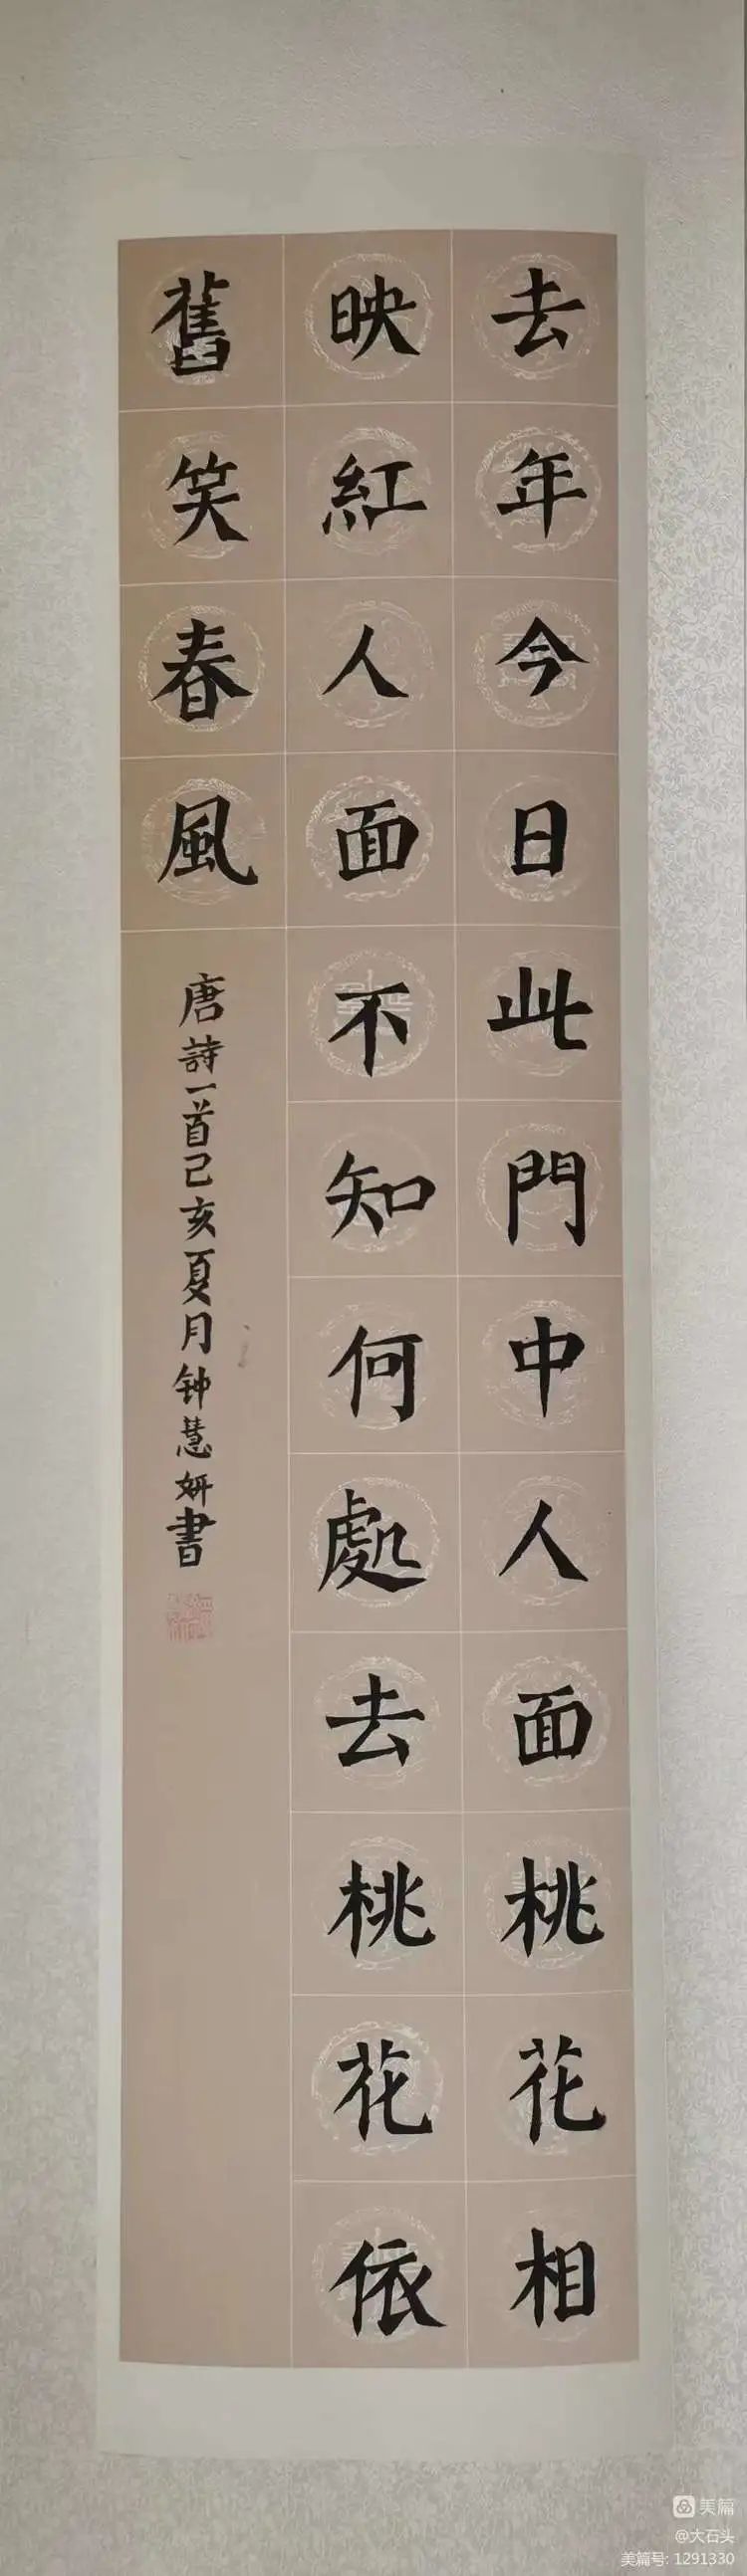 去年今日此門中人面桃花相
映紅人面不知何處去桃花依
舊笑春風
唐詩一首己亥夏月钟慧妍書
美篇
@大石头
美篇号: 1291330